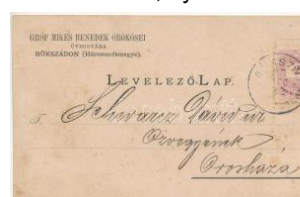 GRÓF MIKES BENEDEK ÖRÖKÖSEI
ÜVEGGYÁRA
BÜKSZÁDON (Háromszékmegye).
LEVELEZŐ-LAP.
T. Schwarcz Dávid úr
Özvegyének
Orosháza